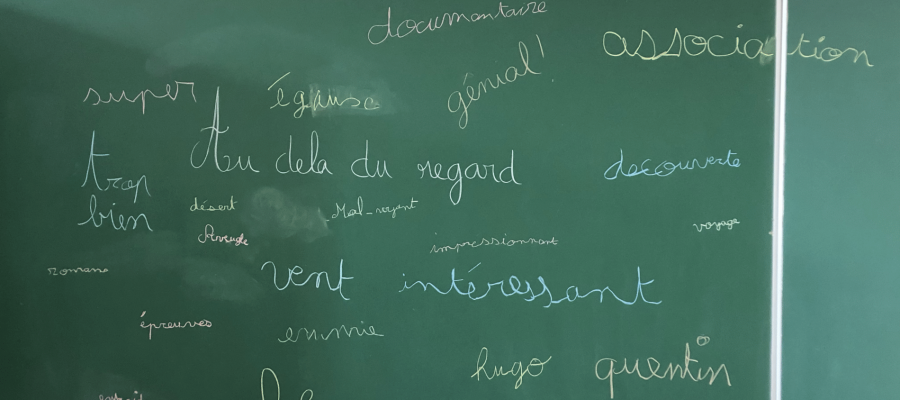 documentaire
association
génial!
super
Au dela du regard
découverte
trop
bien
désert
Mal-voyant
Aveugle
voyage
impressionnant
romane
vent intéressant
épreuves
hugo quentin